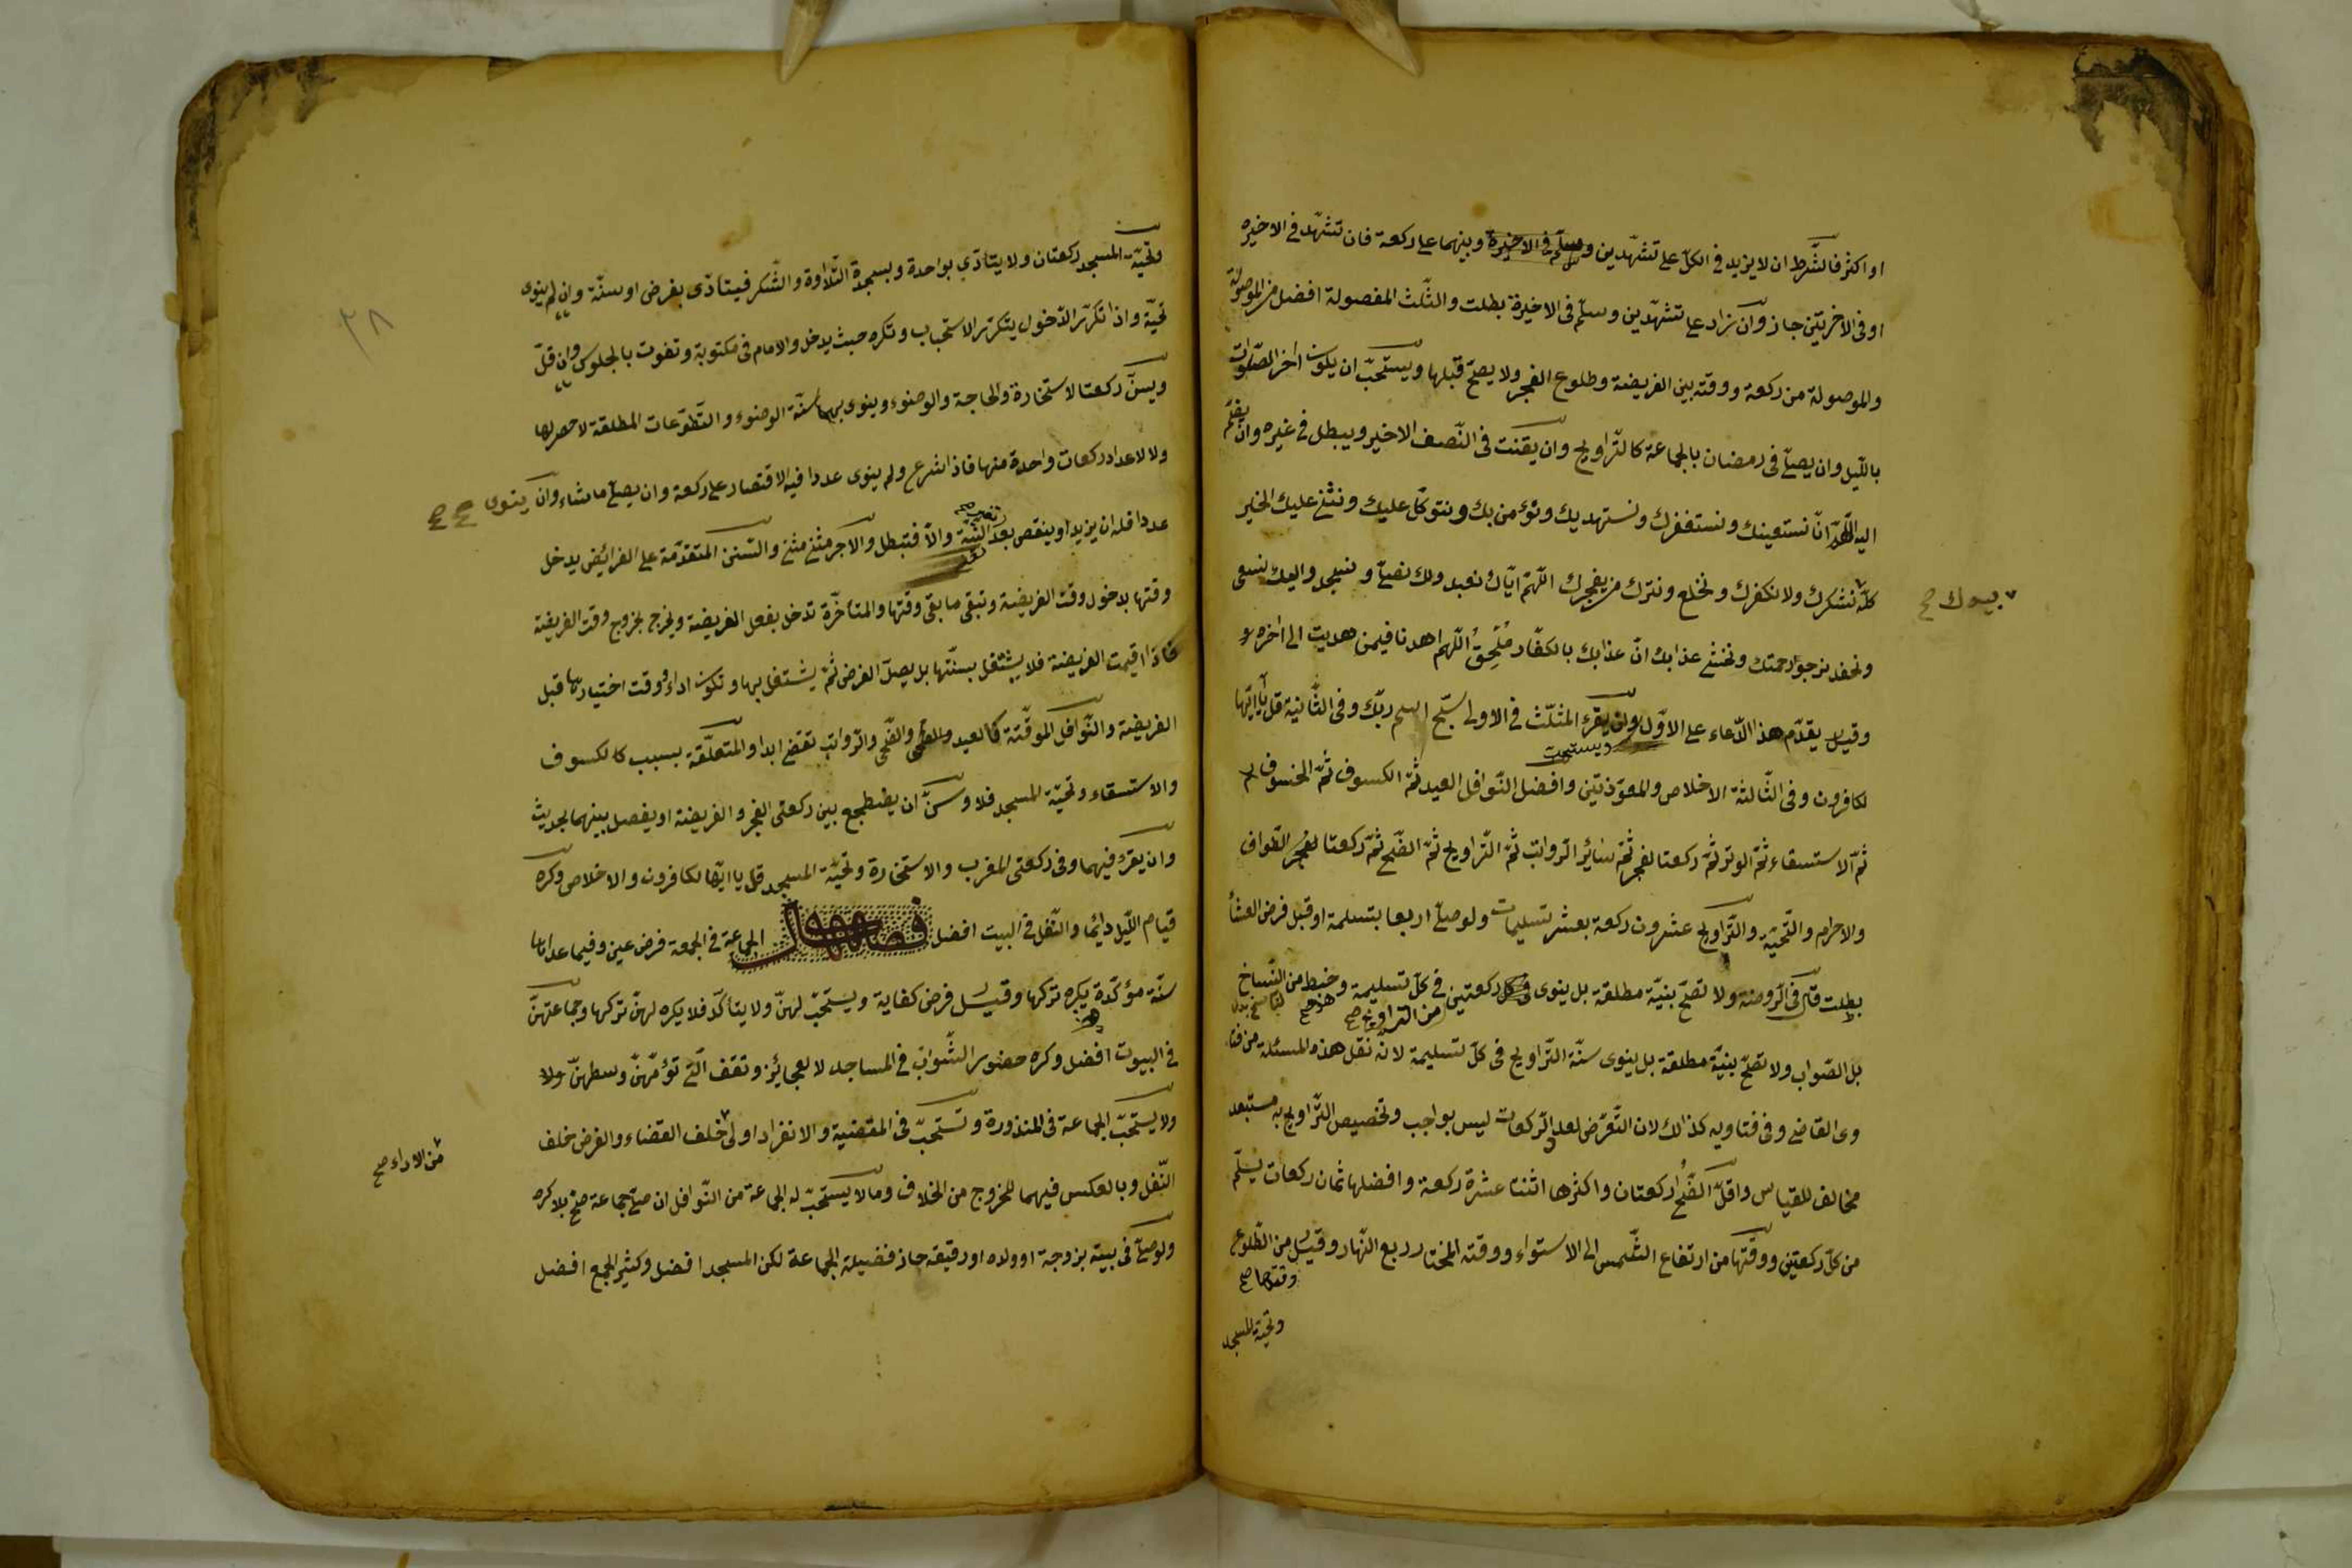 او اكثر فالشرط ان لا يزيد فى الكلّ على تشهّدين وسلّم فى الاخيرة وبينهما على ركعة فان تشهّد فى الاخيره
او فى الاخريتين جاز وان زاد على تشهّدين وسلّم فى الاخيرة بطلت والثّلث المفصولة افضل من الموصولة
والموصولة من ركعة ووقته بين الفريضة وطلوع الفجر ولا يصحّ قبلها ويستحبّ ان يكون اخر الصّلوات
بالليل وان يصلّى فى رمضان بالجماعة كالتّراويح وان يقنت فى النّصف الاخير ويبطل فى غيره وان يضمّ
اليه اللّهمّ انّا نستعينك ونستغفرك ونستهديك ونؤمن بك ونتوكّل عليك ونثنى عليك الخير
كلّه نشكرك ولا نكفرك ونخلع ونترك من يفجرك اللّهمّ ايّاك نعبد ولك نصلّى ونسجد واليك نسعى
ونحفد نرجوا رحمتك ونخشى عذابك انّ عذابك بالكفّار مُلْحِقٌ اللّهم اهدنا فيمن هديت الى اخره
وقيل يقدّم هذ الدّعاء على الاوّل وان يقرء المثلّث فى الاولى سبّح اسم ربّك وفى الثّانية قل يا ايّها
ويستحبّ
لكافرون وفى الثّالثة الاخلاص والمعوّذتين وافضل النّوافل العيد ثمّ الكسوف ثمّ الخسوف
ثمّ الاستسقاء ثمّ الوتر ثمّ ركعتا لفجر ثمّ سائر الرّواتب ثمّ التّراويح ثمّ الضّحى ثمّ ركعتا للطّواف
والاحرام والتّحيّة والتّراويح عشرون ركعة بعشر تسليمات ولو صلّى اربعا بتسلمة او قبل فرض العشا
بطلت قال فى الرّوضة ولا تصحّ بنيّة مطلقة بل ينوى ركعتين فى كلّ تسليمة وخبط من النّساخ
من التراويح صح
بل الصّواب ولا تصحّ بنيّة مطلقة بل ينوى سنّة التّراويح فى كلّ تسليمة لانّه نقل هذه المسئلة من فتا
وى القاضى وفى فتاويه كذالك لان التّعرّض لعدد الرّكعات ليس بواجب وتخصيص التّراويح به مستبعد
مخالف للقياس واقلّ الضّحى ركعتان واكثرها اثنتا عشرة ركعة وافضلها ثمان ركعات يسلّم
من كلّ ركعتين ووقتها من ارتفاع الشّمس الى الاستواء ووقته المختار ربع النّهار وقيل من الطّلوع
وتحية المسجد
وتحيّة المسجد ركعتان ولا يتأدّى بواحدة وبسجدة التّلاوة والشّكر فيتأدّى بفرض او سنّة وان لم ينوى
تحيّة واذا تكرّر الدّخول يتكرّر الاستحباب وتكره حيث يدخل والامام فى مكتوبة وتفوت بالجلوس وان قلّ
ويسنّ ركعتا لاستخارة والحاجة والوضوء وينوى بهما سنّة الوضوء والتّطوّعات المطلقة لا حصر لها
ولا لاعداد ركعات واحدة منها فاذا شرع ولم ينوى عددا فيه الاقتصار على ركعة وان يصلّى ما شاء وان ينوى
عددا فله ان يزيد او ينقص بعد النيّة والّا فتبطل والاجر مثنى مثنى والسّنن المتقدّمة على الفرائض يدخل
وقتها بدخول وقت الفريضة وتبقى ما بقى وقتها والمتأخّرة تدخل بفعل الفريضة ويخرج بخروج وقت الفريضة
فاذا اقيمت الفريضة فلا يشتغل بسنّتها بل يصلّ الفرض ثمّ يشتغل بها وتكون اداء ووقت اختيارها قبل
الفريضة والنّوافل الموقّتة كالعيد والضّحى والرّواتب تقضى ابدا والمتعلّقة بسبب كالكسوف
والاستسقاء وتحيّة المسجد فلا وسنّ ان يضطجع بين ركعتى الفجر والفريضة او يفصل بينهما بحديث
وان يقرء فيهما وفى ركعتى المغرب والاستخارة وتحيّة المسجد قل يا ايّها لكافرون والاخلاص وكره
قيام اللّيل دائما والنّفل فى البيت افضل فصل الجماعة فى الجمعة فرض عين وفيما عداها
سنّة مؤكّدة يكره تركها وقيل فرض كفاية ويستحبّ لهنّ ولا يتأكّد فلا يكره لهنّ تركها وجماعتهنّ
فى البيوت افضل وكره حضور الشّوابّ فى المساجد لا لعجائز وتقف الّتى تؤمّهنّ وسطهنّ ولا
ولا يستحبّ الجماعة فى المنذورة وتستحبّ فى المقضية والانفراد اولى خلف القضاء والفرض خلف
من الاداء صح
النّفل وبالعكس فيهما للخروج من الخلاف وما لا يستحبّ له الجماعة من النّوافل ان صلّى جماعة صحّ بلا كره
ولو صلّى فى بيته بزوجة او ولده او رقيقه حاز فضيلة الجماعة لكن المسجد افضل وكثير الجمع افضل